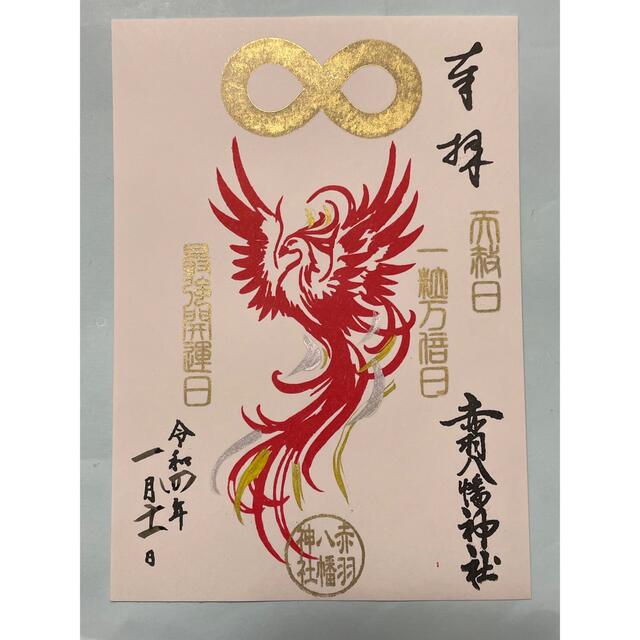 奉拝
天赦日
一粒万倍日
赤羽八幡神社
最強開運日
令和四年
一月十一日
赤羽
八幡
神社